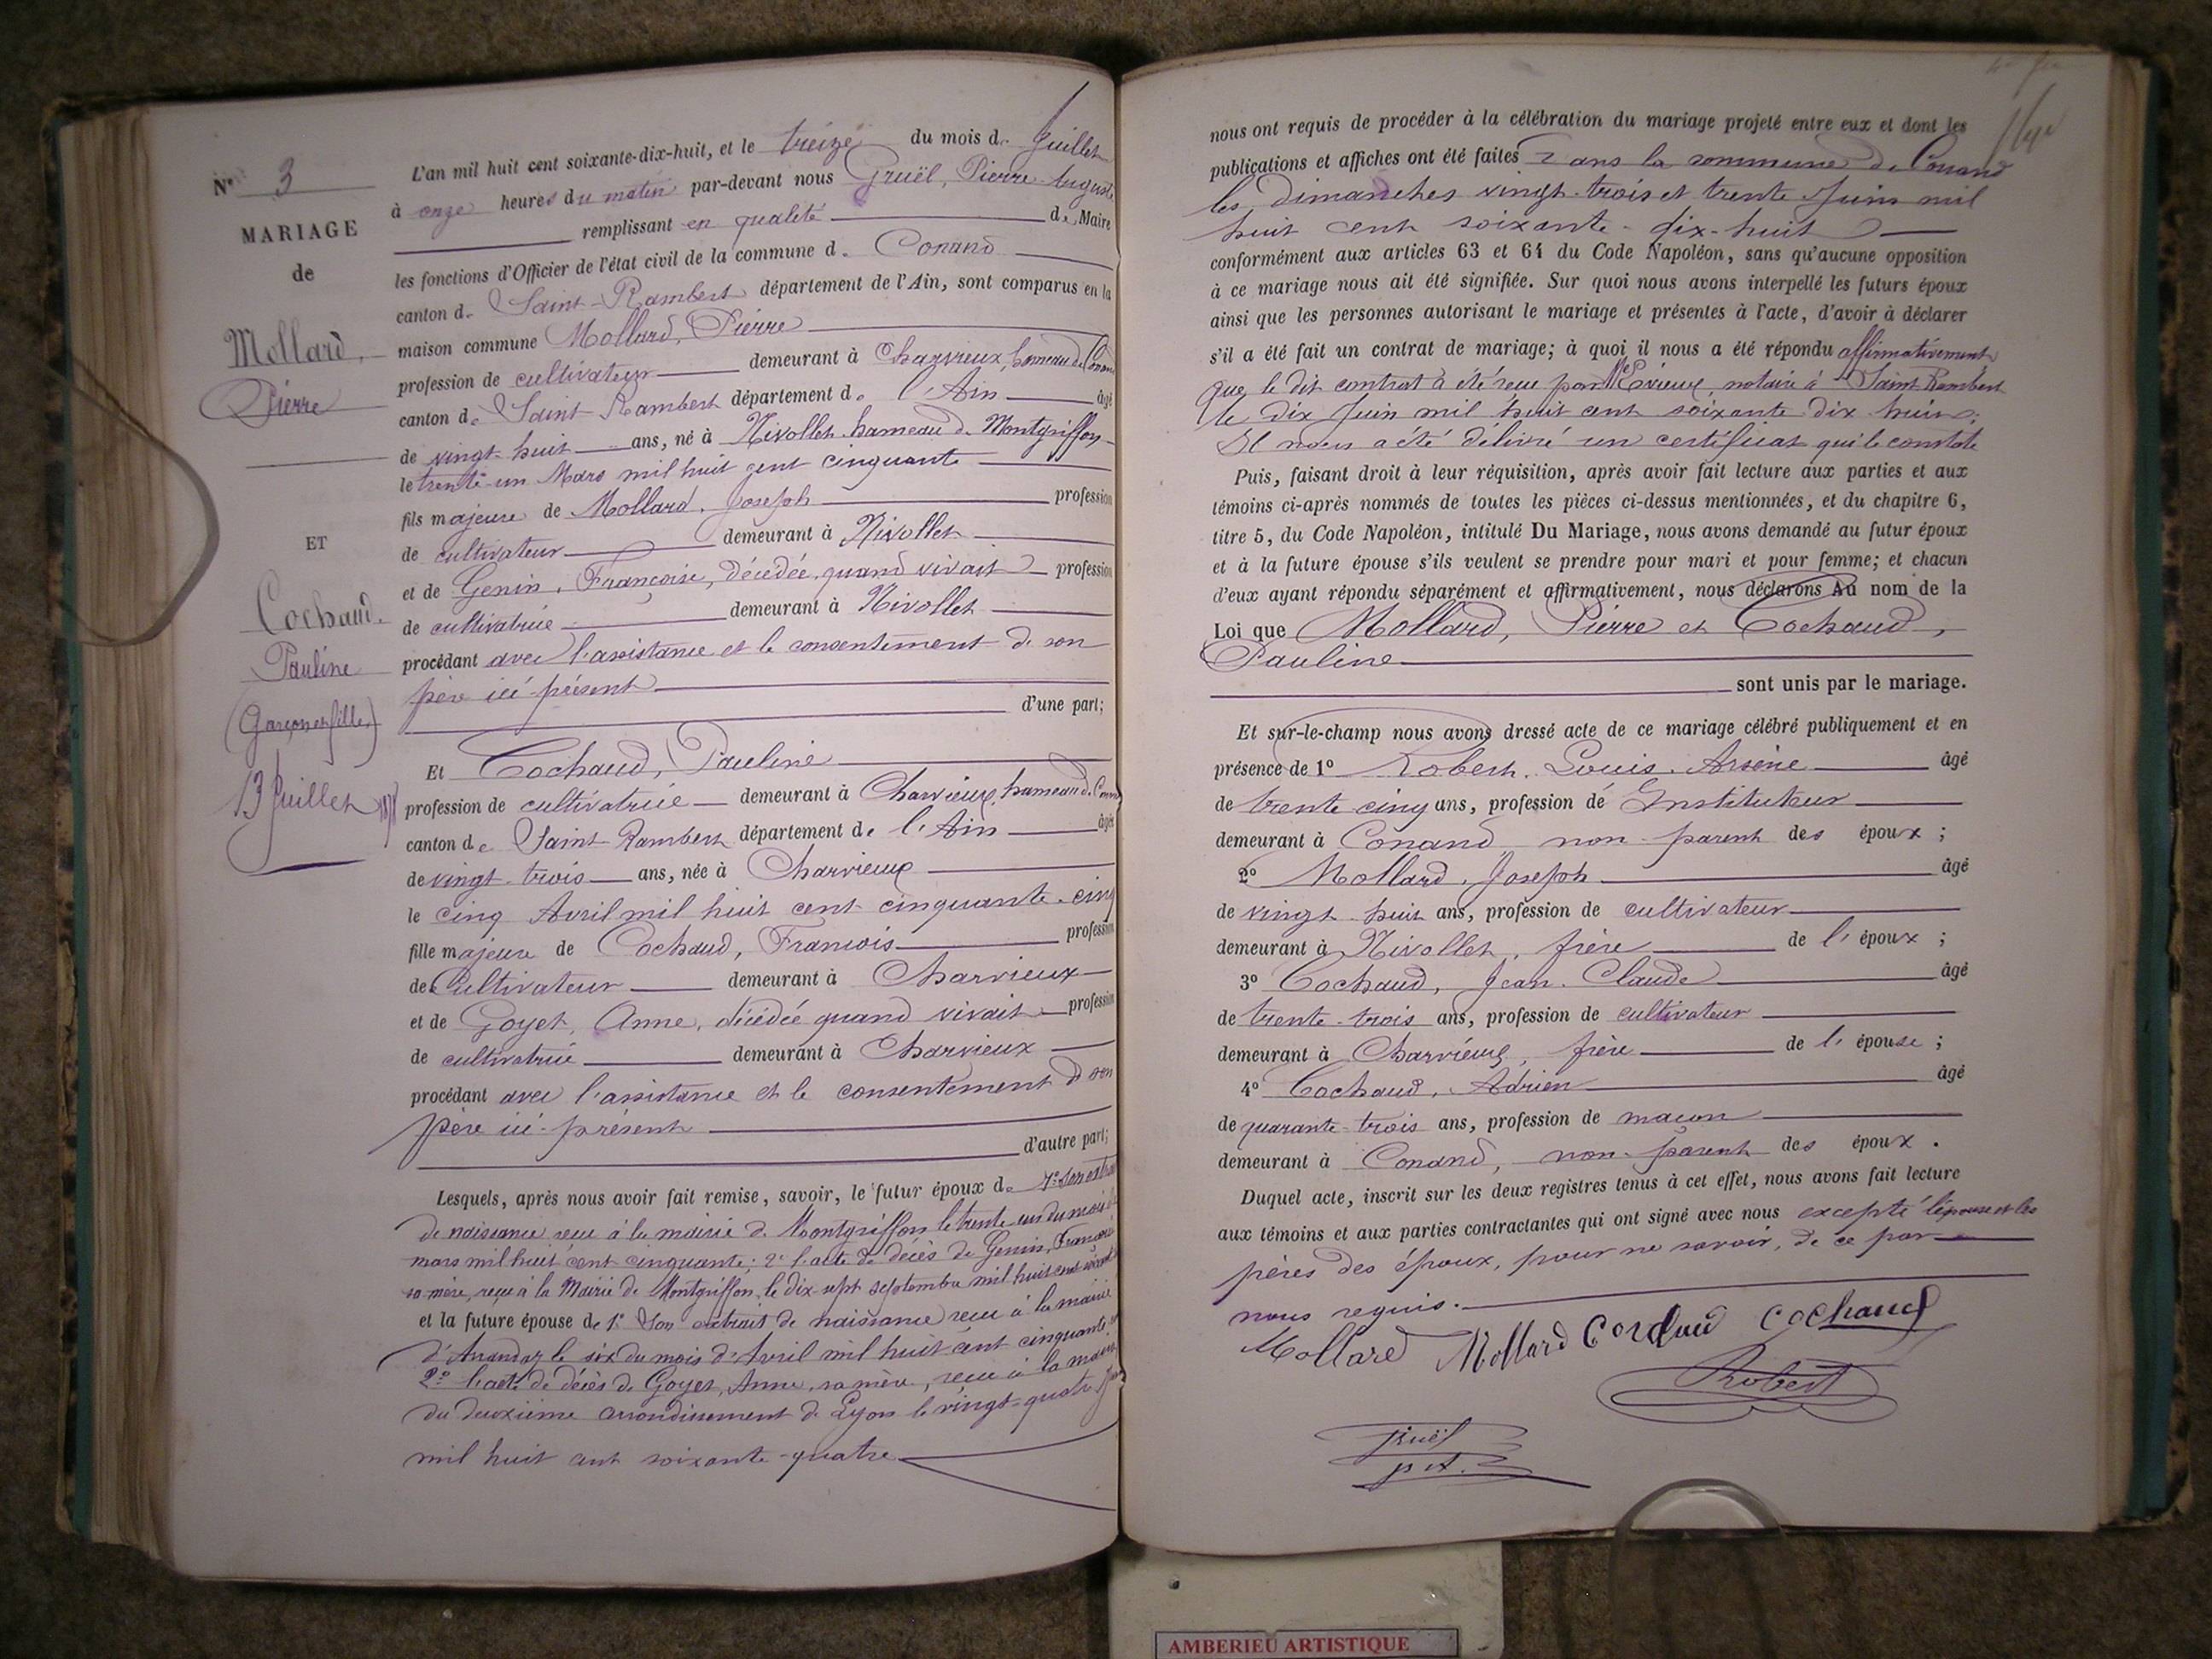 N° 3
MARIAGE
de
Mollard,
Pierre
ET
Cochaud
Pauline
(Garçon et fille)
13 Juillet 1878
L'an mil huit cent soixante-dix-huit, et le treize du mois de Juillet
à onze heures du matin par-devant nous Gruël, Pierre Auguste
remplissant en qualité de Maire
les fonctions d'Officier de l'état civil de la commune d. Conand
canton d. Saint-Rambert département de l'Ain, sont comparus en la
maison commune Mollard, Pierre
profession de cultivateur demeurant à Charvieux, hameau de Conand
canton de Saint-Rambert département d. l'Ain âgé
de vingt-huit ans, né à Nivollet hameau de Montgriffon
le trente-un Mars mil huit cent cinquante
fils majeure de Mollard, Joseph profession
de cultivateur demeurant à Nivollet
et de Genin, Françoise, décédée, quand vivait profession
de cultivatrice demeurant à Nivollet
procédant avec l'assistance et le consentement de son
père ici présent
d'une part;
Et Cochaud, Pauline
profession de cultivatrice demeurant à Charvieux, hameau d. Conand
canton de Saint-Rambert département de l'Ain âgée
de vingt-trois ans, née à Charvieux
le cinq Avril mil huit cent cinquante-cinq
fille majeure de Cochaud, François profession
de Cultivateur demeurant à Charvieux
et de Goyet, Anne, décédée quand vivait profession
de cultivatrice demeurant à Charvieux
procédant avec l'assistance et le consentement d son
père ici-présent
d'autre part;
Lesquels, après nous avoir fait remise, savoir, le futur époux de 1° son extrait
de naissance reçu à la mairie de Montgriffon le trente-un du mois de
mars mil huit cent cinquante; 2° l'acte de décès de Genin, Françoise
sa mère, reçu à la Mairie de Montgriffon, le dix-sept septembre mil huit cent
et la future épouse de 1° Son extrait de naissance reçu à la mairie
d'Arandaz le six du mois d'Avril mil huit cent cinquante
2° l'acte de décès de Goyet, Anne, sa mère, reçu à la mairie
du deuxième arrondissement de Lyon le vingt-quatre
mil huit cent soixante-quatre
nous ont requis de procéder à la célébration du mariage projeté entre eux et dont les
publications et affiches ont été faites dans la commune de Conand
les dimanches vingt-trois et trente Juin mil
huit cent soixante-dix-huit
conformément aux articles 63 et 64 du Code Napoléon, sans qu'aucune opposition
à ce mariage nous ait été signifiée. Sur quoi nous avons interpellé les futurs époux
ainsi que les personnes autorisant le mariage et présentes à l'acte, d'avoir à déclarer
s'il a été fait un contrat de mariage; à quoi il nous a été répondu affirmativement
que le dit contrat a été reçu par Me notaire à Saint Rambert
le dix Juin mil huit cent soixante dix huit.
Il nous a été délivré un certificat qui le constate
Puis, faisant droit à leur réquisition, après avoir fait lecture aux parties et aux
témoins ci-après nommés de toutes les pièces ci-dessus mentionnées, et du chapitre 6,
titre 5, du Code Napoléon, intitulé Du Mariage, nous avons demandé au futur époux
et à la future épouse s'ils veulent se prendre pour mari et pour femme; et chacun
d'eux ayant répondu séparément et affirmativement, nous déclarons Au nom de la
Loi que Mollard, Pierre et Cochaud,
Pauline
sont unis par le mariage.
Et sur-le-champ nous avons dressé acte de ce mariage célébré publiquement et en
présence de 1° Robert, Louis, Arsène âgé
de trente cinq ans, profession de Instituteur
demeurant à Conand non-parent des époux;
2° Mollard, Joseph âgé
de vingt-huit ans, profession de cultivateur
demeurant à Nivollet, frère de l'époux;
3° Cochaud, Jean-Claude âgé
de trente-trois ans, profession de cultivateur
demeurant à Charvieux, frère de l'épouse;
4° Cochaud, Adrien âgé
de quarante-trois ans, profession de maçon
demeurant à Conand, non-parent des époux.
Duquel acte, inscrit sur les deux registres tenus à cet effet, nous avons fait lecture
aux témoins et aux parties contractantes qui ont signé avec nous excepté l'épouse et les
pères des époux, pour ne savoir, de ce par
nous requis.
Mollard Mollard Cochaud Cochaud
Robert
Gruël
p A.
AMBERIEU ARTISTIQUE